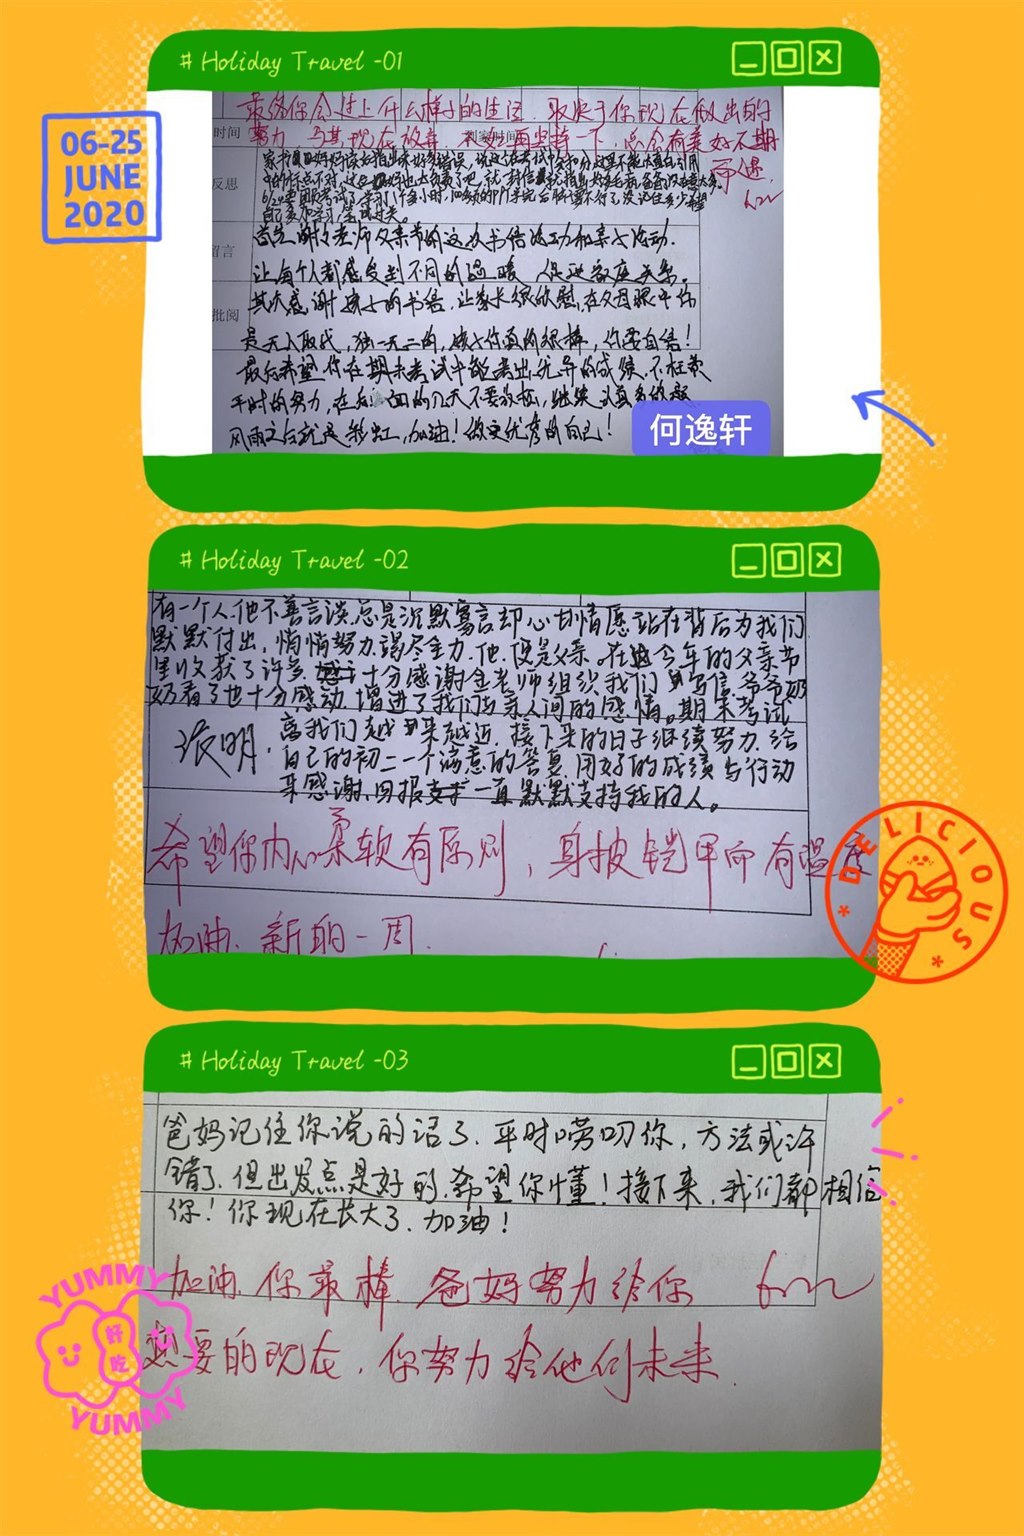 # Holiday Travel -01
06-25
JUNE
2020
最终你会过上什么样子的生活,取决于你现在做出的
努力,与其现在放弃,不如再坚持一下,总会有美好不期
而遇.
时间
反思
留言
首先谢谢老师父亲节的这次书信活动和亲子活动.
让每个人都感受到不同的温暖,促进家庭关系.
其次感谢孩子的书信,让家长很欣慰,在父母眼中你
是无人取代,独一无二的,孩子你真的很棒,你要自信!
批阅
最后希望你在期末考试中能考出优异的成绩,不枉费
平时的努力,在后面的几天不要放松,继续认真多做题
风雨之后就是彩虹,加油!做更优秀的自己!
何逸轩
# Holiday Travel -02
有一个人,他不善言谈,总是沉默寡言却心甘情愿站在背后为我们
默默付出,悄悄努力,竭尽全力.他,便是父亲。在今年的父亲节
里收获了许多,十分感谢金老师组织我们写信,爷爷奶
奶看了也十分感动,增进了我们与亲人间的感情。期末考试
离我们越来越近,接下来的日子继续努力,给
自己的初二一个满意的答复,用好的成绩与行动
来感谢,回报一直默默支持我的人。
希望你内心柔软有原则,身披铠甲而有温度
加油.新的一周.
DELICIOUS
# Holiday Travel -03
爸妈记住你说的话了.平时唠叨你,方法或许
错了,但出发点是好的,希望你懂!接下来,我们都相信
你!你现在长大了,加油!
加油,你最棒.爸妈努力给你
想要的现在,你努力给他们未来.
YUMMY
好吃
YUMMY